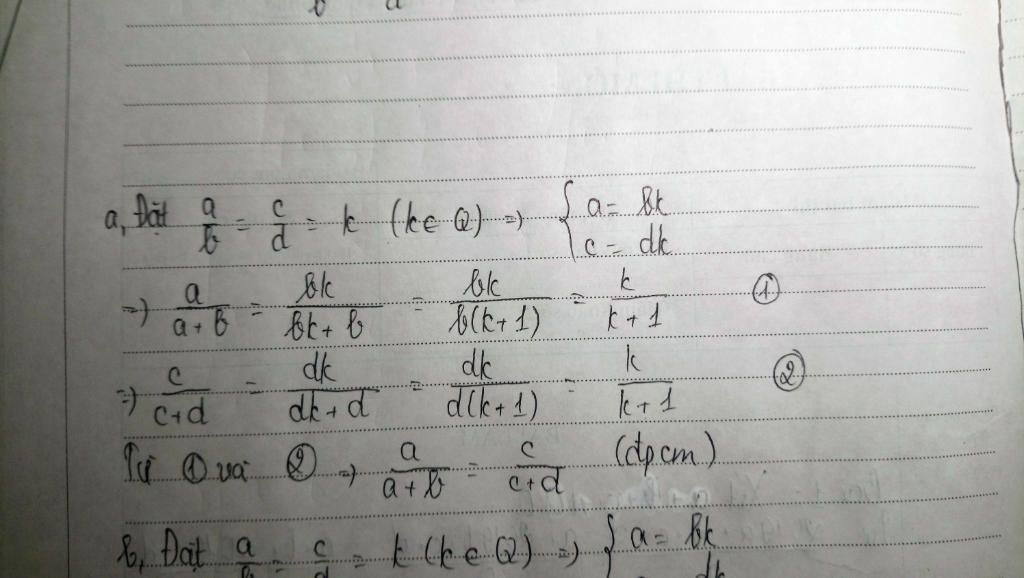 b d
a, Đặt a/b = c/d = k (k ∈ Q) => { a = bk
c = dk
=> a/(a+b) = bk/(bk+b) = bk/(b(k+1)) = k/(k+1) ①
=> c/(c+d) = dk/(dk+d) = dk/(d(k+1)) = k/(k+1) ②
Từ ① và ② => a/(a+b) = c/(c+d) (đpcm)
b, Đặt a/b = c/d = k (k ∈ Q) => { a = bk
dk